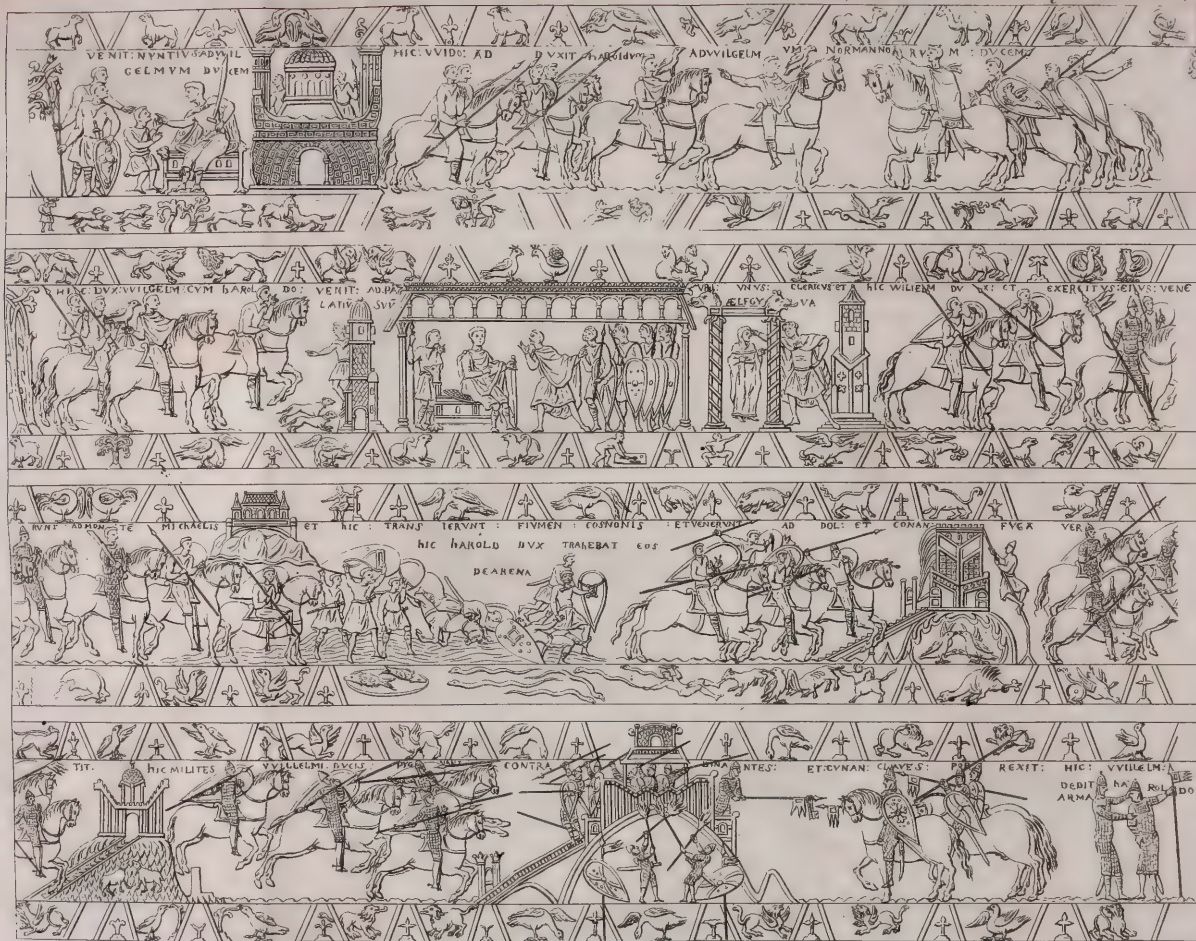 VENIT: NVNTIVS: ADVVIL
GELMVM DVCEM
HIC: VVIDO: AD DVXIT hAROLdVM ADVVILGELM VM NORMANNO RV M : DVCEM
HIC: DVX: VVILGELM: CVM hAROL DO: VENIT: AD. PA
LATIV SVV
VNVS: CLERICVS: ET
ÆLFGY VA
hIC WILIELM DV X: ET EXERCITVS: EIVS: VENE
RVNT AD MON TĒ MIChAELIS ET hIC : TRANS IERVNT : FLVMEN : COSNONIS ET VENERVNT AD DOL: ET CONAN: FVGA VER
hIC hAROLD DVX TRAhEBAT EOS
DE ARENA
TIT. hIC MILITES VVILLELMI: DVCIS: CONTRA NANTES: ET: CVNAN: CLAVES: POR REXIT: HIC: VVILLELM:
DEDIT hA ROL DO
ARMA